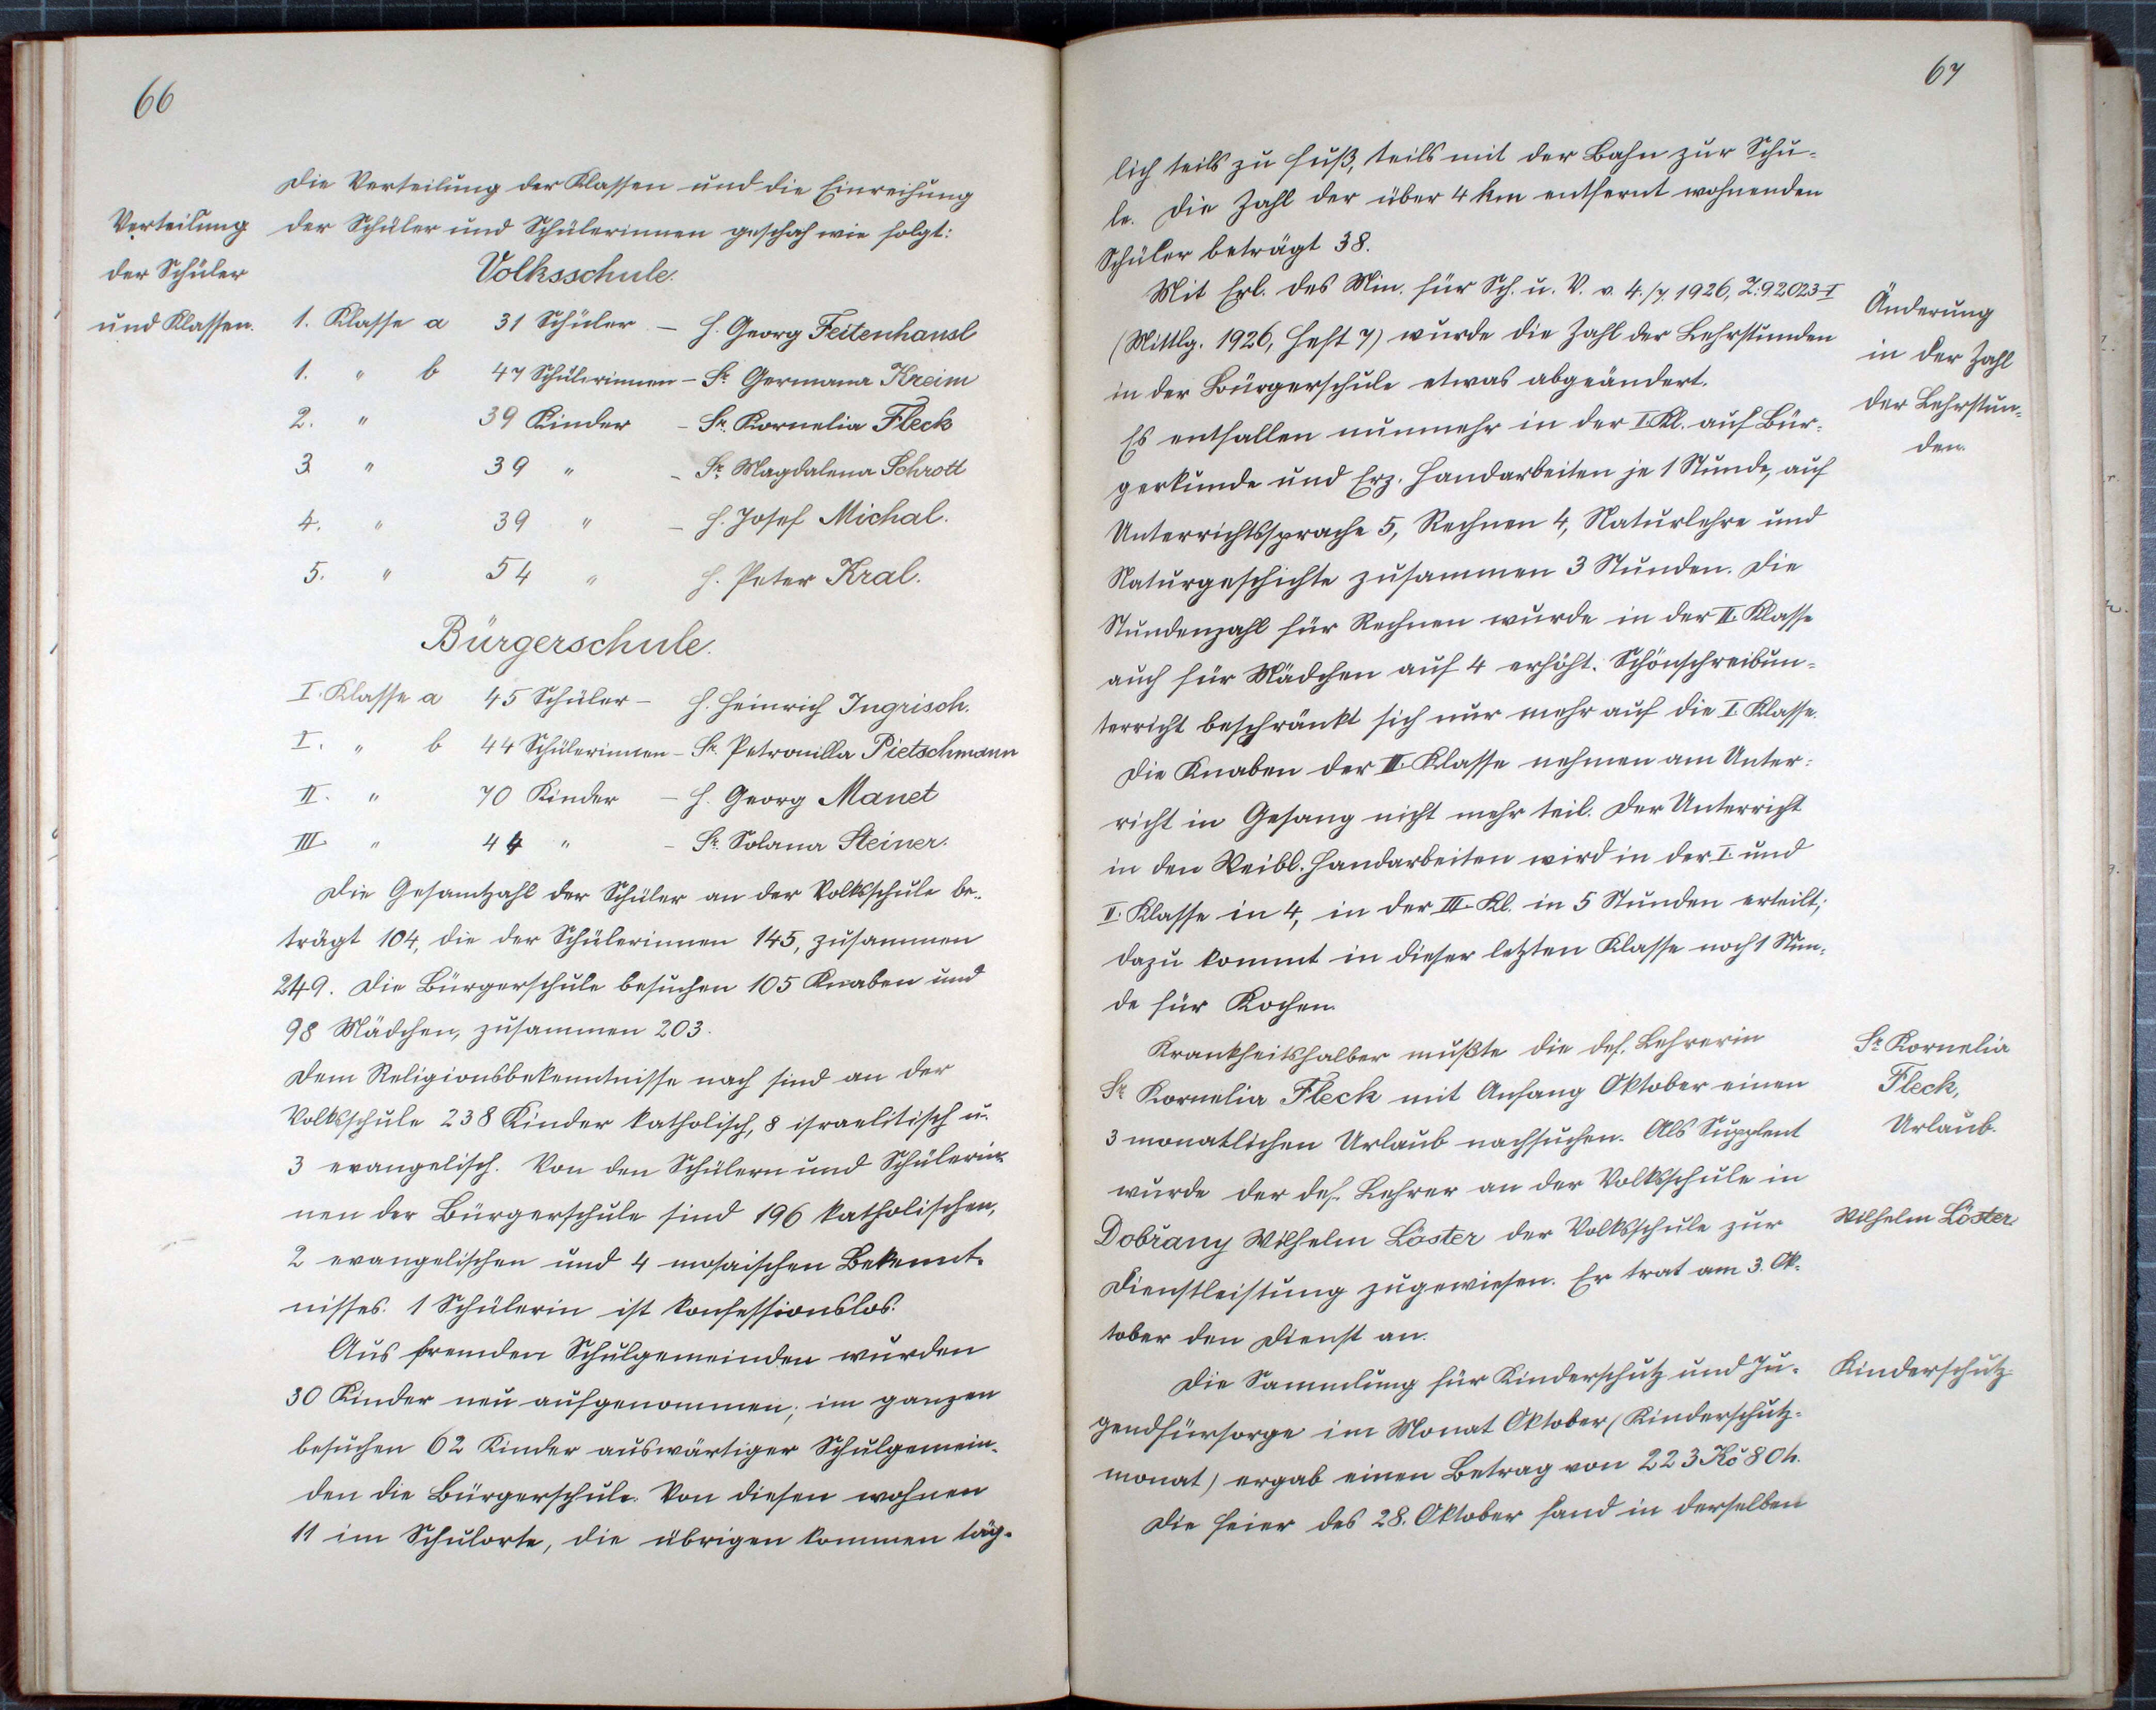 66
Die Verteilung der Klassen und die Einreihung
Verteilung der Schüler und Schülerinnen geschah wie folgt:
der Schüler
Volksschule.
und Klassen.
1. Klasse a 31 Schüler – H. Georg Feitenhansl
1. " b 47 Schülerinnen – Sr. Germana Kreim
2. " 39 Kinder – Sr. Kornelia Fleck
3. " 39 " – Sr. Magdalena Schrott
4. " 39 " – H. Josef Michal.
5. " 54 " H. Peter Kral.
Bürgerschule.
I. Klasse a 45 Schüler – H. Heinrich Ingrisch.
I. " b 44 Schülerinnen – Sr. Petronilla Pietschmann
II. " 70 Kinder – H. Georg Manet
III. " 44 " – Sr. Solana Steiner.
Die Gesamtzahl der Schüler an der Volksschule be-
trägt 104, die der Schülerinnen 145, zusammen
249. Die Bürgerschule besuchen 105 Knaben und
98 Mädchen, zusammen 203.
Dem Religionsbekenntnisse nach sind an der
Volksschule 238 Kinder katholisch, 8 israelitisch u.
3 evangelisch. Von den Schülern und Schülerin-
nen der Bürgerschule sind 196 katholischen,
2 evangelischen und 4 mosaischen Bekennt-
nisses. 1 Schülerin ist konfessionslos.
Aus fremden Schulgemeinden wurden
30 Kinder neu aufgenommen; im ganzen
besuchen 62 Kinder auswärtiger Schulgemein-
den die Bürgerschule. Von diesen wohnen
11 im Schulorte, die übrigen kommen täg-
67
lich teils zu Fuß, teils mit der Bahn zur Schu-
le. Die Zahl der über 4 km entfernt wohnenden
Schüler beträgt 38.
Mit Erl. des Min. für Sch. u. V. v. 4./7. 1926, Z: 92023-I
(Mittlg. 1926, Heft 7) wurde die Zahl der Lehrstunden
in der Bürgerschule etwas abgeändert.
Änderung
in der Zahl
der Lehrstun-
den.
Es entfallen nunmehr in der I. Kl. auf Bür-
gerkunde und Erz. Handarbeiten je 1 Stunde, auf
Unterrichtssprache 5, Rechnen 4, Naturlehre und
Naturgeschichte zusammen 3 Stunden. Die
Stundenzahl für Rechnen wurde in der II. Klasse
auch für Mädchen auf 4 erhöht. Schönschreibun-
terricht beschränkt sich nur mehr auf die I. Klasse.
Die Knaben der III. Klasse nehmen am Unter-
richt in Gesang nicht mehr teil. Der Unterricht
in den Weibl. Handarbeiten wird in der I. und
II. Klasse in 4, in der III. Kl. in 5 Stunden erteilt;
dazu kommt in dieser letzten Klasse noch 1 Stun-
de für Kochen.
Krankheitshalber mußte die def. Lehrerin
Sr. Kornelia Fleck mit Anfang Oktober einen
3 monatlichen Urlaub nachsuchen. Als Supplent
Sr. Kornelia
Fleck,
Urlaub.
wurde der def. Lehrer an der Volksschule in
Dobřany Wilhelm Löster der Volksschule zur
Wilhelm Löster
Dienstleistung zugewiesen. Er trat am 3. Ok-
tober den Dienst an.
Die Sammlung für Kinderschutz und Ju-
Kinderschutz
gendfürsorge im Monat Oktober (Kinderschutz-
monat) ergab einen Betrag von 223 Kč 80 h.
Die Feier des 28. Oktober fand in derselben